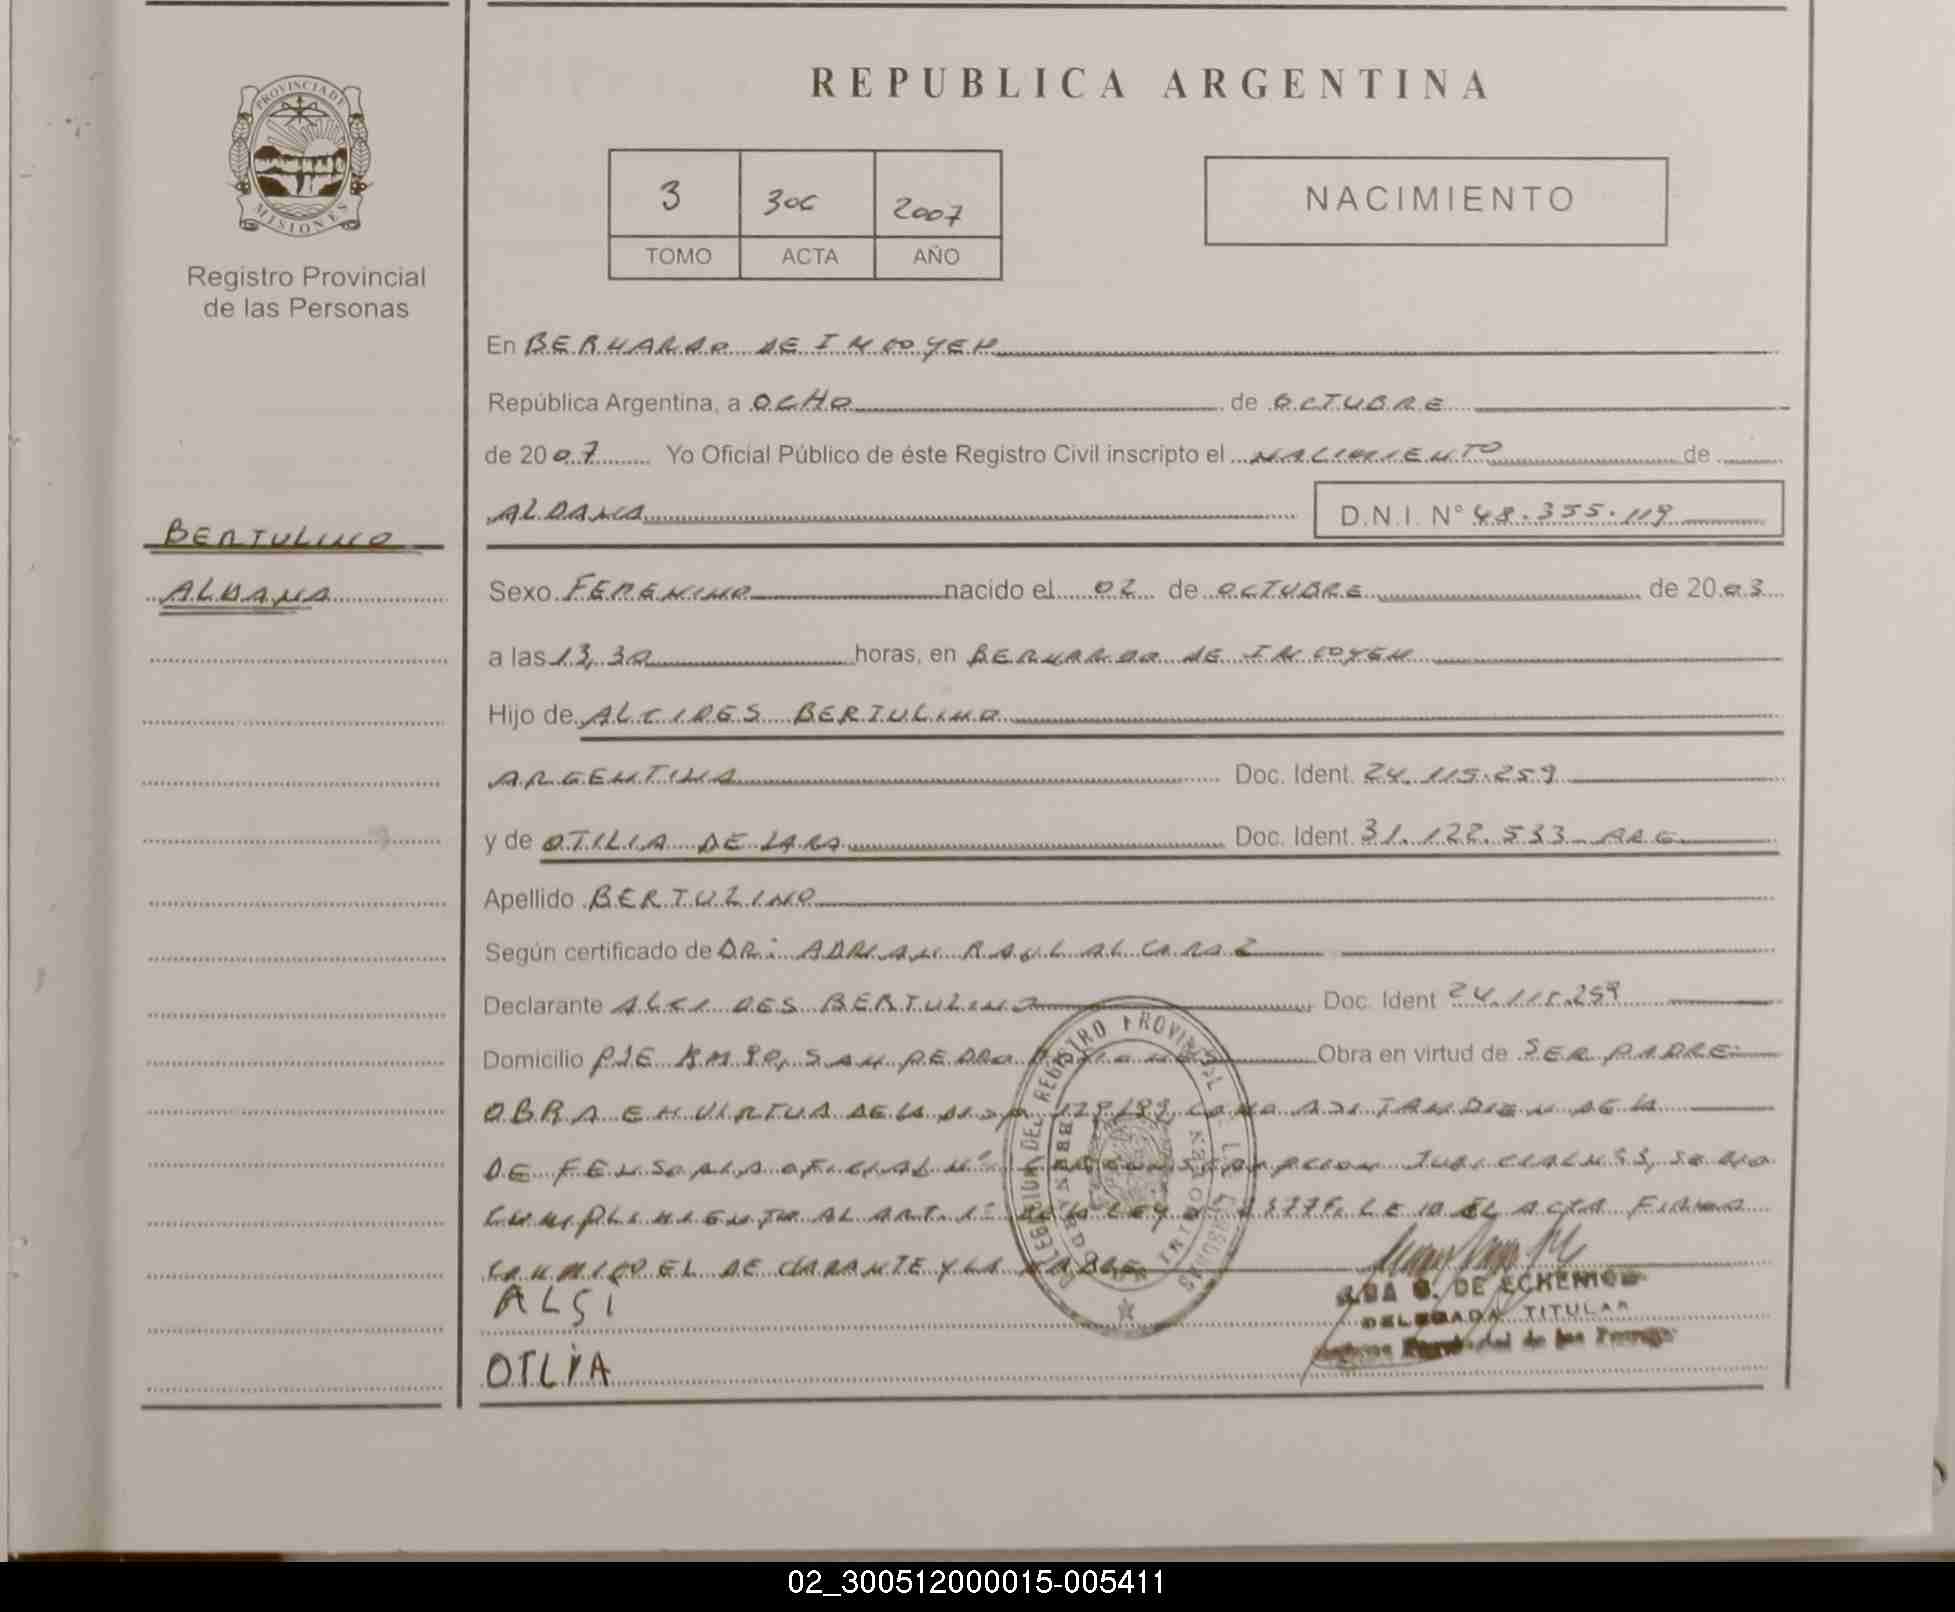 REPUBLICA ARGENTINA
PROVINCIA DE MISIONES
Registro Provincial
de las Personas
3 306 2007
TOMO ACTA AÑO
NACIMIENTO
En BERNARDO DE IRIGOYEN
República Argentina, a OCHO de OCTUBRE
de 2007 Yo Oficial Público de éste Registro Civil inscripto el NACIMIENTO de
ALDANA D.N.I. N° 48.355.119
BERTULINO
ALDANA
Sexo FEMENINO nacido el 02 de OCTUBRE de 2003
a las 13,30 horas, en BERNARDO DE IRIGOYEN
Hijo de ALCIDES BERTULINO
ARGENTINA Doc. Ident. 24.115.259
y de OTILIA DE LARA Doc. Ident. 31.122.533 - ARG
Apellido BERTULINO
Según certificado de DR: ADRIAN RAUL ALCARAZ
Declarante ALCIDES BERTULINO Doc. Ident 24.115.259
Domicilio PJE KM 90, SAN PEDRO MISIONES Obra en virtud de SER PADRE
OBRA EN VIRTUD DE LA DISP 178/99 COMO ASI TAMBIEN DE LA
DEFENSORIA OFICIAL N° CIRCUNSCRIPCION JUDICIAL SE DIO
CUMPLIMIENTO AL ART. 1° DE LA LEY LEIDO EL ACTA FIRMA
CONMIGO EL DECLARANTE Y LA MADRE
ALSI
OTLIA
DELEGACION DEL REGISTRO PROVINCIAL DE LAS PERSONAS
BERNARDO DE IRIGOYEN
DE ECHENIQUE
DELEGADA TITULAR
Registro Provincial de las Personas
02_300512000015-005411